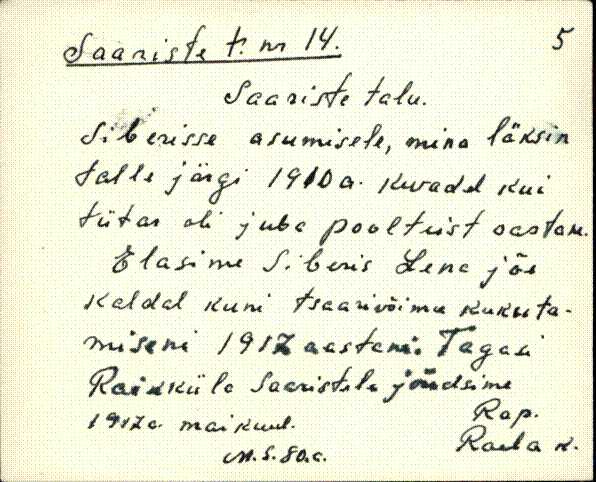 Saariste t. nr 14. 5
Saariste talu.
Siberisse asumisele, mina läksin
talle järgi 1910 a. kevadel kui
tütar oli juba pooleteist aastane.
Elasime Siberis Lena jõe
kaldal kuni tsaarivõimu kukuta-
miseni 1917 aastani. Tagasi
Raikküla Saaristele jõudsime
1917 a. maikuul. Rap.
M.S. 80.a. Raela k.